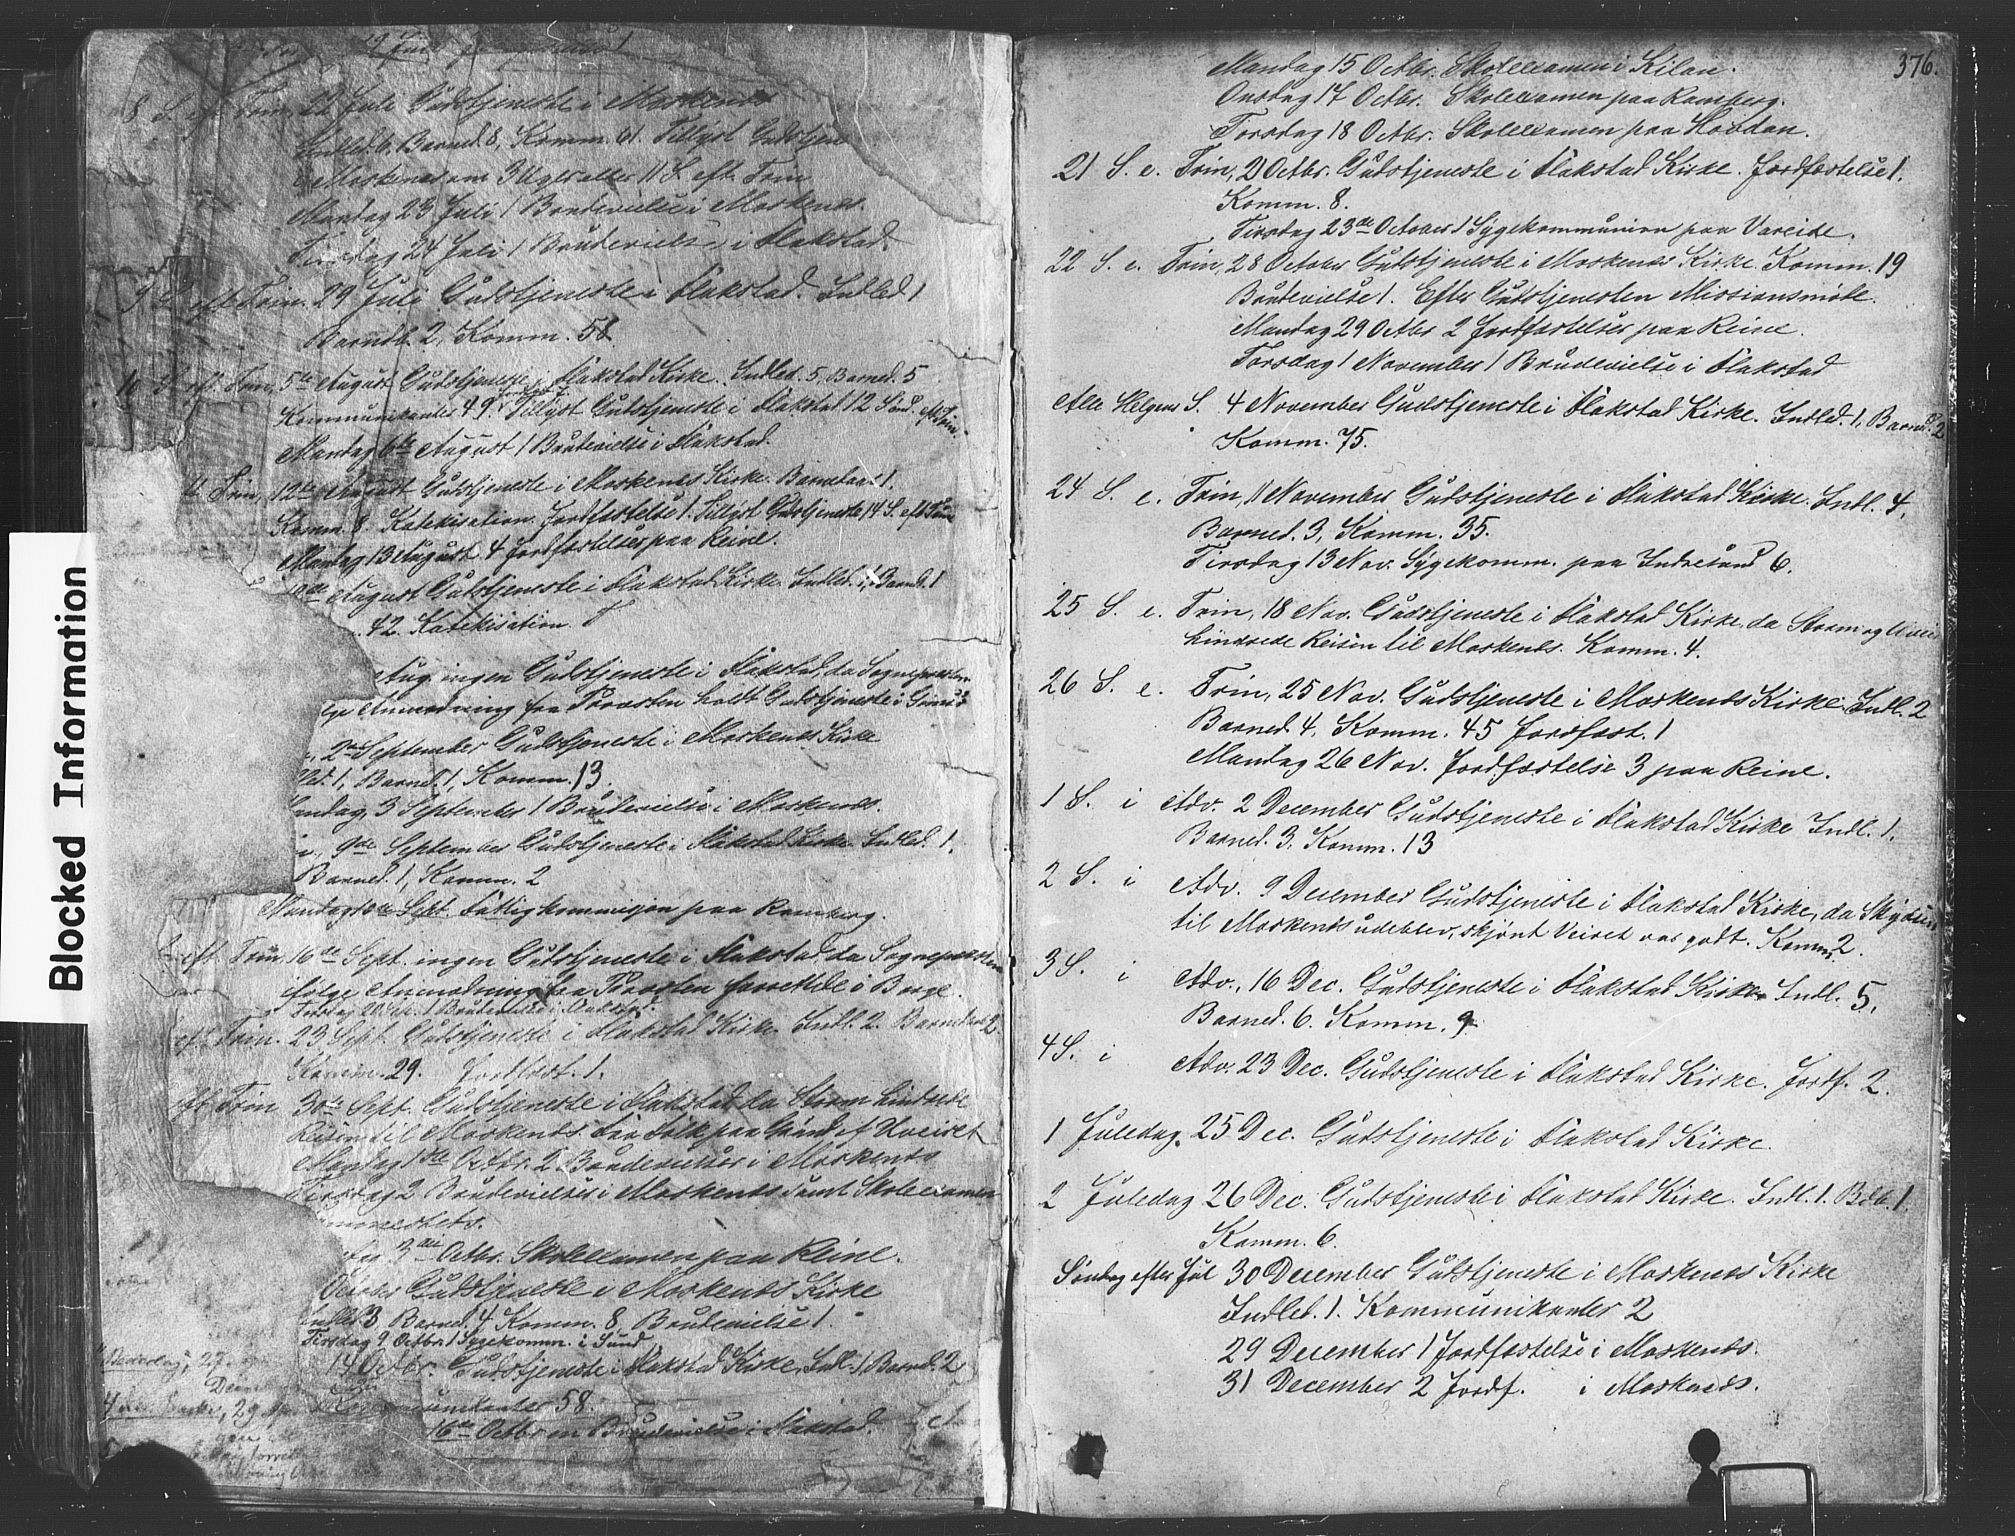 8 S. eft. Trin. 22 Juli Gudstjeneste i Moskenes
Indled. 6, Barned. 8, Komm. 61. Tillyst Gudstjen
i Moskenes om 3 Uger eller 11 S. eft. Trin
Mandag 23 Juli 1 Brudevielse i Moskenes.
Tirsdag 24 Juli 1 Brudevielse i Flakstad.
9 S. eft. Trin. 29 Juli Gudstjeneste i Flakstad. Indled 1
Barndb. 2, Komm. 58
10 S. eft. Trin. 5te August Gudstjeneste i Flakstad Kirke. Indled. 5, Barned. 5
Kommunikanter 49. Tillyst Gudstjeneste i Flakstad 12 Sønd. eft Trin.
Mandag 6te August 1 Brudevielse i Flakstad.
Trin, 12te August Gudstjeneste i Moskenes Kirke. Barnedaab 1.
Komm. 8. Katekisation. Jordfæstelse 1. Tillyst Gudstjeneste 14 S. eft Trin
Mandag 13 August 4 Jordfæstelser paa Reine.
August Gudstjeneste i Flakstad Kirke. Indled. 1, Barnd. 1
. 42. Katekisation.
Aug. ingen Gudstjeneste i Flakstad, da Sognepresten
Anmodning fra Provsten holdt Gudstjeneste i
2den September Gudstjeneste i Moskenes Kirke
1, Barned. 1, Komm. 13.
ndag, 3 September 1 Brudevielse i Moskenes.
9de September Gudstjeneste i Flakstad Kirke. Indled. 1.
Barned. 1, Komm. 2
Mandag 10de Sept. Fattigkommisjon paa Ramberg.
eft. Trin 16de Sept. ingen Gudstjeneste i Flakstad da Sognepresten
ifølge Anmodning fra Provsten forrettede i Borge.
Torsdag 20 Sept. 1 Brudevielse i Flakstad.
eft. Trin. 23 Sept. Gudstjeneste i Flakstad Kirke. Indl. 2. Barnedaab 2
Komm. 29. Jordfæst. 1.
eft. Trin 30te Sept. Gudstjeneste i Flakstad, da Storm hindrede
Reisen til Moskenes. Faa Folk paa Grund af Uveiret
Mandag 1ste Octbr. 2 Brudevielser i Moskenes
Tirsdag 2 Brudevielser i Moskenes samt Skoleexamen
sammesteds.
3die Octbr. Skoleexamen paa Reine.
October Gudstjeneste i Moskenes Kirke
Indled 3, Barned. 4. Komm. 8. Brudevielse 1.
Tirsdag 9. Octbr. 1 Sygekomm. i Sund
14 Octbr. Gudstjeneste i Flakstad Kirke, Indl. 1 Barned. 2
Kommunikanter 58.
16de Octbr en Brudevielse i Flakstad.
Blocked Information
376.
Mandag 15 Octbr. Skoleexamen i Kilan.
Onsdag 17 Octbr. Skoleexamen paa Ramberg.
Torsdag 18 Octbr. Skoleexamen paa Hovdan.
21 S. e. Trin, 21 Octbr. Gudstjeneste i Flakstad Kirke. Jordfæstelse 1.
Komm. 8.
Tirsdag 23de October 1 Sygekommunion paa Vareide.
22 S. e. Trin, 28 October Gudstjeneste i Moskenes Kirke. Komm. 19
Brudevielse 1. Efter Gudstjenesten Missionsmøde.
Mandag 29 Octbr 2 Jordfæstelser paa Reine.
Torsdag 1 November 1 Brudevielse i Flakstad
Alle Helgens S. 4 November Gudstjeneste i Flakstad Kirke. Indled. 1, Barned. 2
Komm. 75.
24 S. e. Trin, 11 November Gudstjeneste i Flakstad Kirke. Indl. 4,
Barned. 3, Komm. 35.
Tirsdag 13 Nov. Sygekomm. paa Indresund 6.
25 S. e. Trin, 18 Nov. Gudstjeneste i Flakstad Kirke, da Storm og Uveir
hindrede Reisen til Moskenes. Komm. 4.
26 S. e. Trin, 25 Nov. Gudstjeneste i Moskenes Kirke. Indl. 2
Barned. 4, Komm. 45 Jordfæst. 1
Mandag 26 Nov. Jordfæstelse 3 paa Reine.
1 S. i Adv. 2 December Gudstjeneste i Flakstad Kirke Indl. 1.
Barned. 3. Komm. 13
2 S. i Adv. 9 December Gudstjeneste i Flakstad Kirke, da Skydsen
til Moskenes udeblev, skjønt Veiret var godt. Komm. 2.
3 S. i Adv. 16 Dec. Gudstjeneste i Flakstad Kirke Indl. 5.
Barned. 6. Komm. 9
4 S. i Adv. 23 Dec. Gudstjeneste i Flakstad Kirke. Jordf. 2.
1 Juledag. 25 Dec. Gudstjeneste i Flakstad Kirke.
2 Juledag 26 Dec. Gudstjeneste i Flakstad Kirke. Indl. 1. Bdb. 1.
Komm. 6.
Søndag efter Jul 30 December Gudstjeneste i Moskenes Kirke
Indled. 1. Kommunikanter 2
29 December 1 Jordfæstelse i Moskenes.
31 December 2 Jordf. i Moskenes.